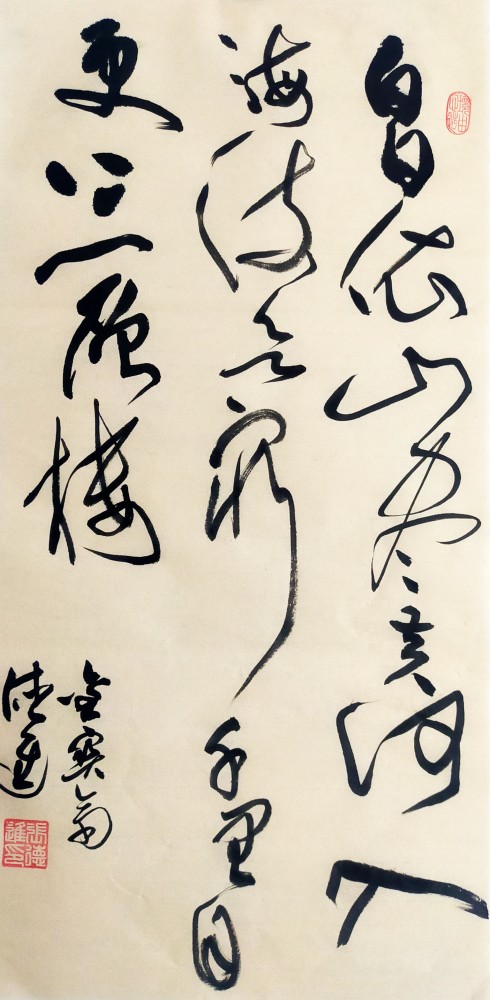 白日依山尽黄河入
海流欲穷千里目
更上一层楼
德進
張德進印